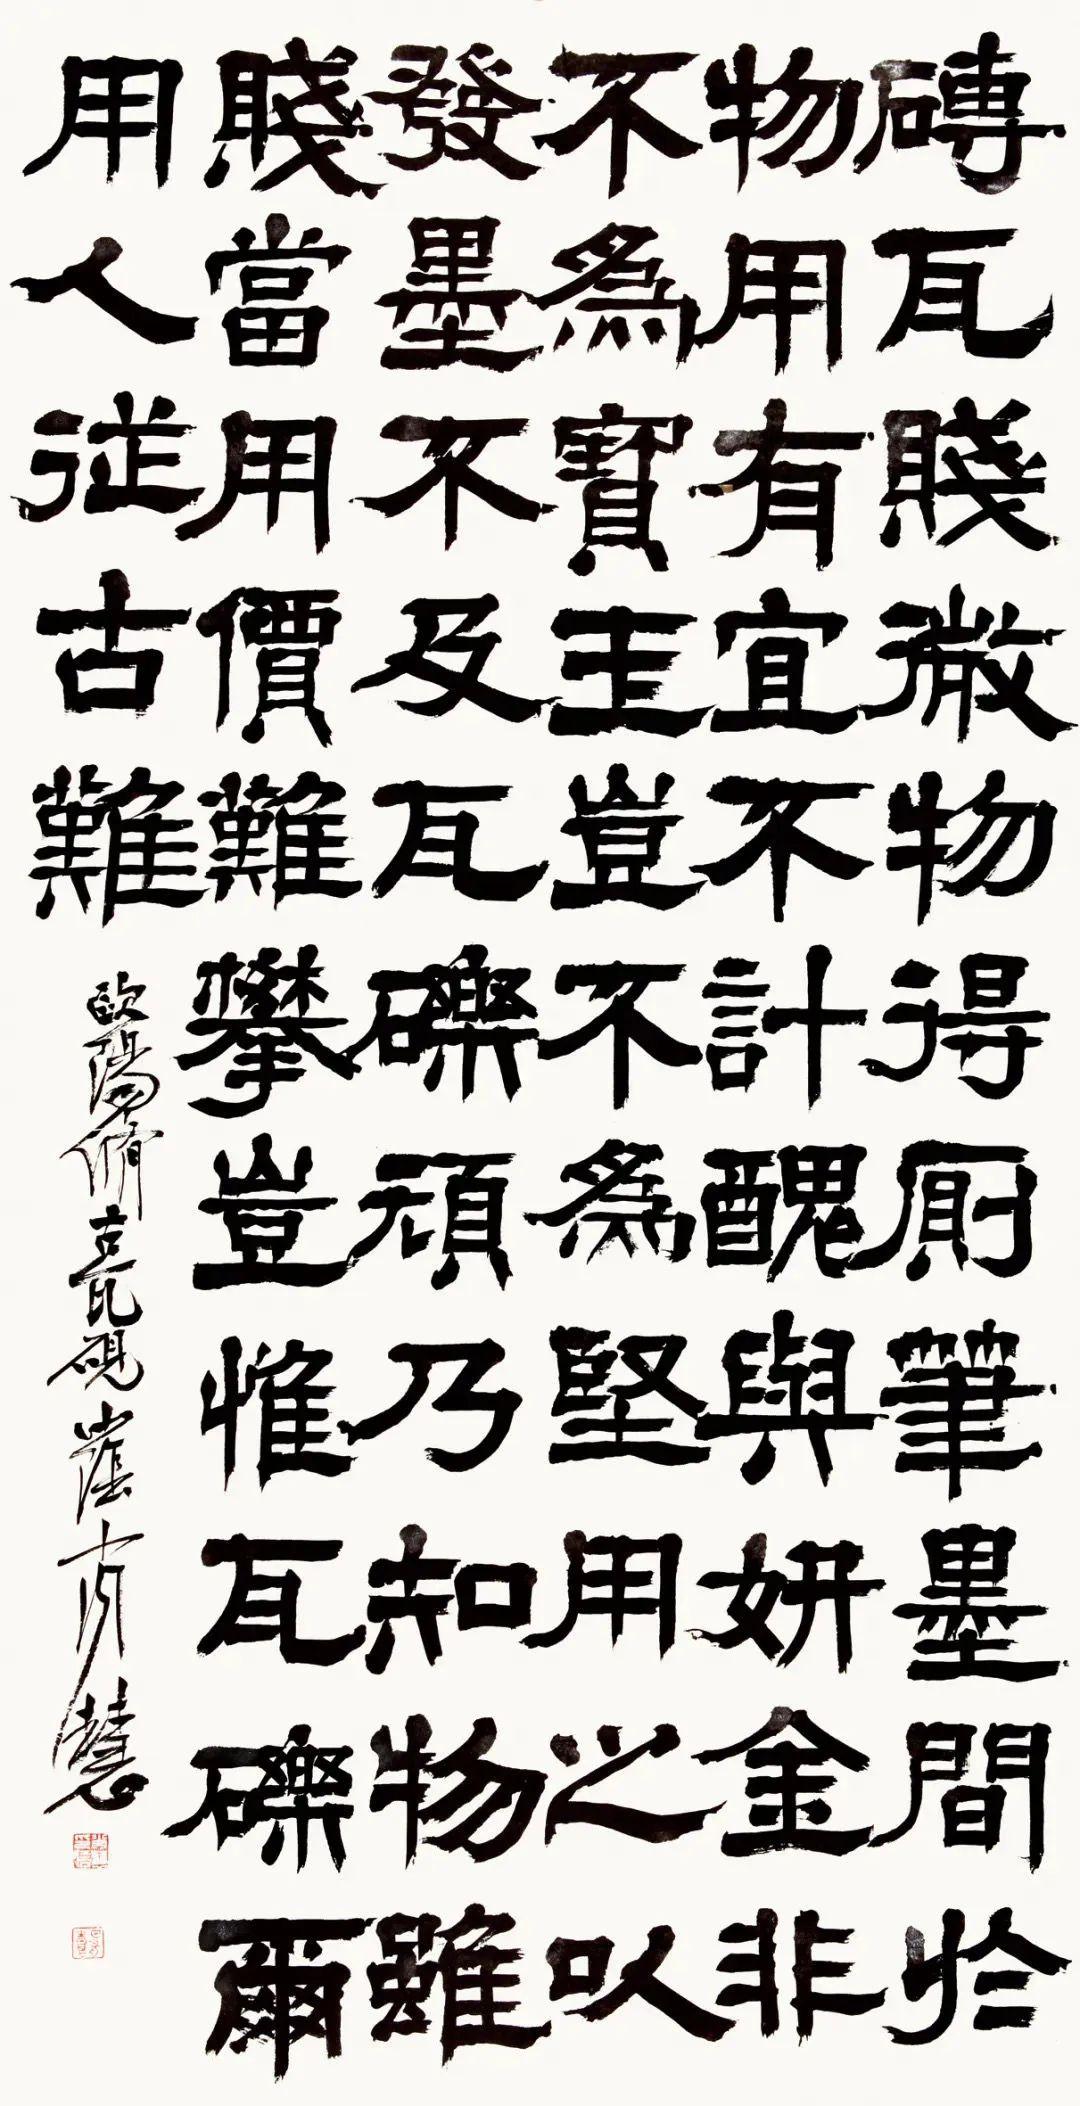 磚瓦賤微物得厠筆墨間於
物用有宜不計醜與妍金非
不為寶玉豈不為堅用之以
發墨不及瓦礫頑乃知物雖
賤當用價難攀豈惟瓦礫爾
用人從古難
歐陽脩古瓦硯